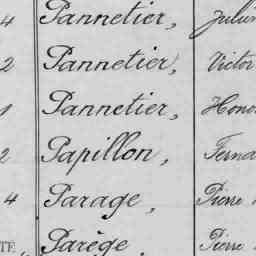 4 Pannetier, Julien
2 Pannetier, Victor
Pannetier, Hono
2 Papillon, Ferna
4 Parage, Pierre
TÉ Parège, Pierre